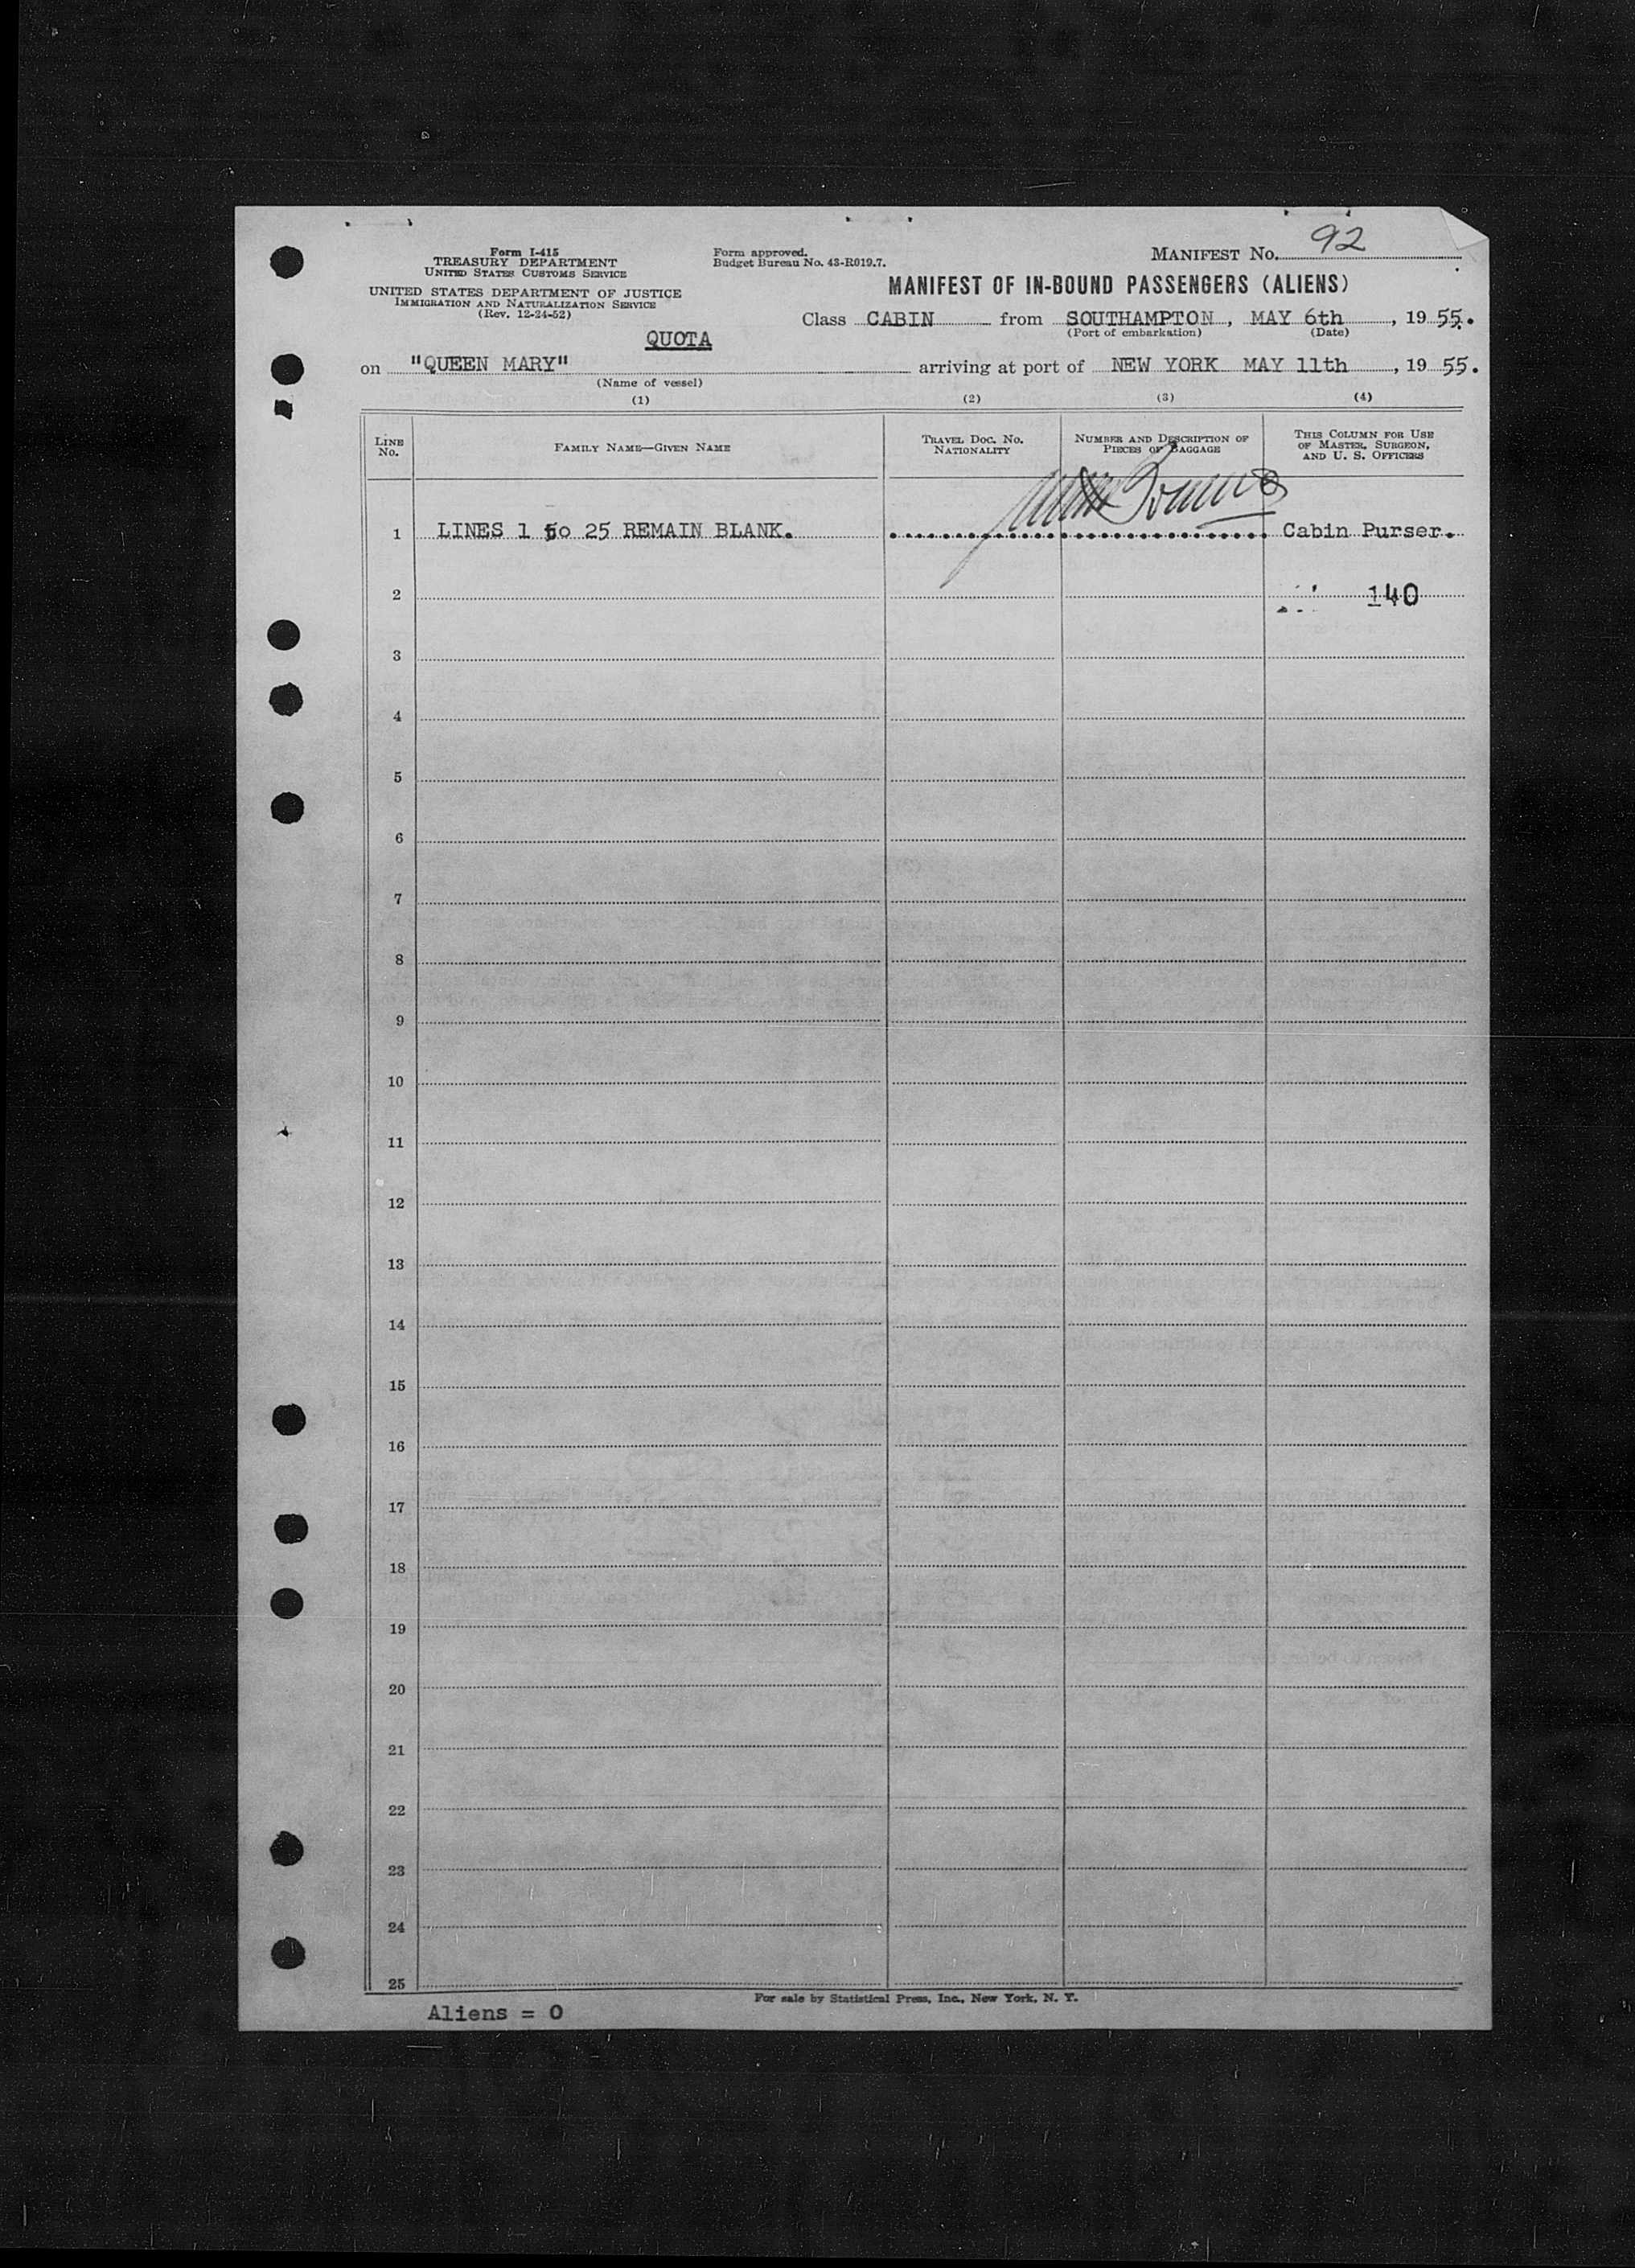 Form I-415
TREASURY DEPARTMENT
UNITED STATES CUSTOMS SERVICE
UNITED STATES DEPARTMENT OF JUSTICE
IMMIGRATION AND NATURALIZATION SERVICE
(Rev. 12-24-52)
Form approved.
Budget Bureau No. 43-R019.7.
MANIFEST No. 92
MANIFEST OF IN-BOUND PASSENGERS (ALIENS)
Class CABIN from SOUTHAMPTON, MAY 6th, 1955.
(Port of embarkation) (Date)
QUOTA
on "QUEEN MARY" arriving at port of NEW YORK MAY 11th, 1955.
(Name of vessel)
(1) (2) (3) (4)
LINE No. FAMILY NAME—GIVEN NAME TRAVEL DOC. No. NATIONALITY NUMBER AND DESCRIPTION OF PIECES OF BAGGAGE THIS COLUMN FOR USE OF MASTER, SURGEON, AND U. S. OFFICERS
1 LINES 1 to 25 REMAIN BLANK. Cabin Purser.
2 140
3
4
5
6
7
8
9
10
11
12
13
14
15
16
17
18
19
20
21
22
23
24
25
For sale by Statistical Press, Inc., New York, N. Y.
Aliens = 0